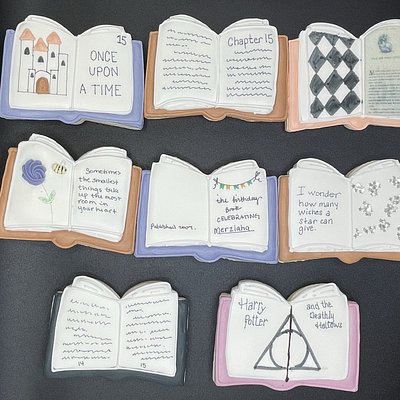 15
ONCE
UPON
A TIME
Chapter 15
Sometimes
the smallest
things take
up the most
room in
your heart
Published 2007.
the birthday
CELEBRATING
Merziaha
I wonder
how many
wishes a
star can
give.
14
15
Harry
Potter
and the
Deathly
Hallows